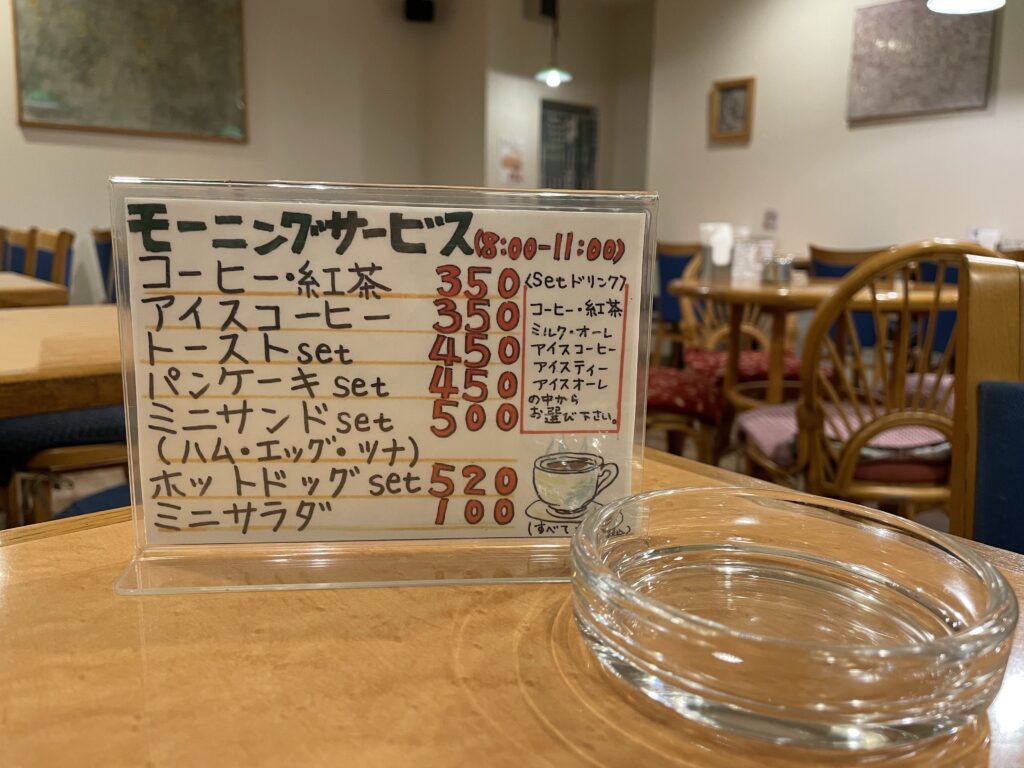 モーニングサービス(8:00-11:00)
コーヒー・紅茶 350
アイスコーヒー 350
トーストset 450
パンケーキset 450
ミニサンドset 500
(ハム・エッグ・ツナ)
ホットドッグset 520
ミニサラダ 100
(Setドリンク)
コーヒー・紅茶
ミルク・オーレ
アイスコーヒー
アイスティー
アイスオーレ
の中から
お選び下さい。
(すべて